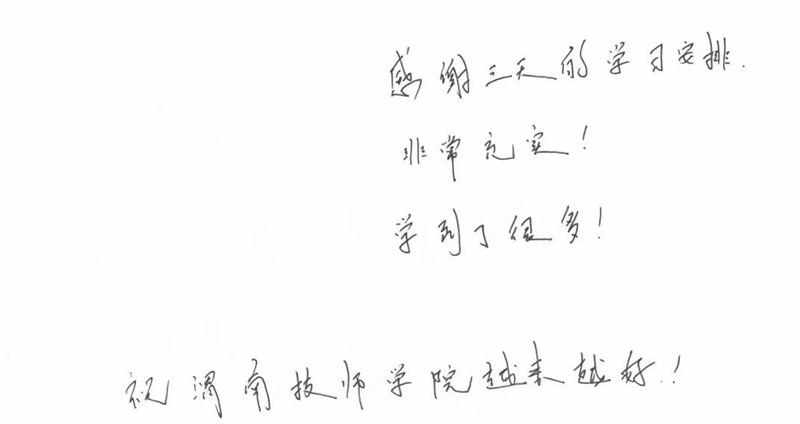 感谢三天的学习安排.
非常充实!
学到了很多!
祝渭南技师学院越来越好!